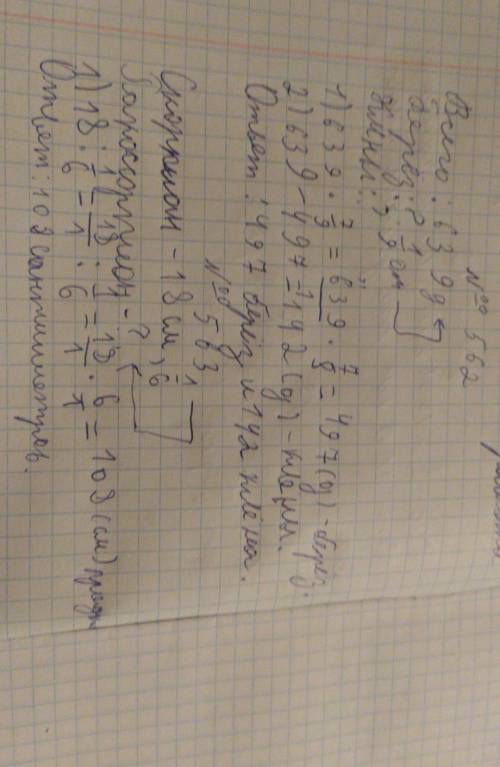 № 562
Всего: 639 д
берёз: ? 7/9 от
клёны: ?
1) 639 · 7/9 = 639 · 7/9 = 497(д) - берёз.
2) 639 - 497 = 142 (д) - клёны.
Ответ: 497 берёз и 142 клёна.
№ 563
Скорпион - 18 см, 1/6
- ?
1) 18 : 1/6 = 18/1 : 1/6 = 18/1 · 6/1 = 108 (см)
Ответ: 108 сантиметров.